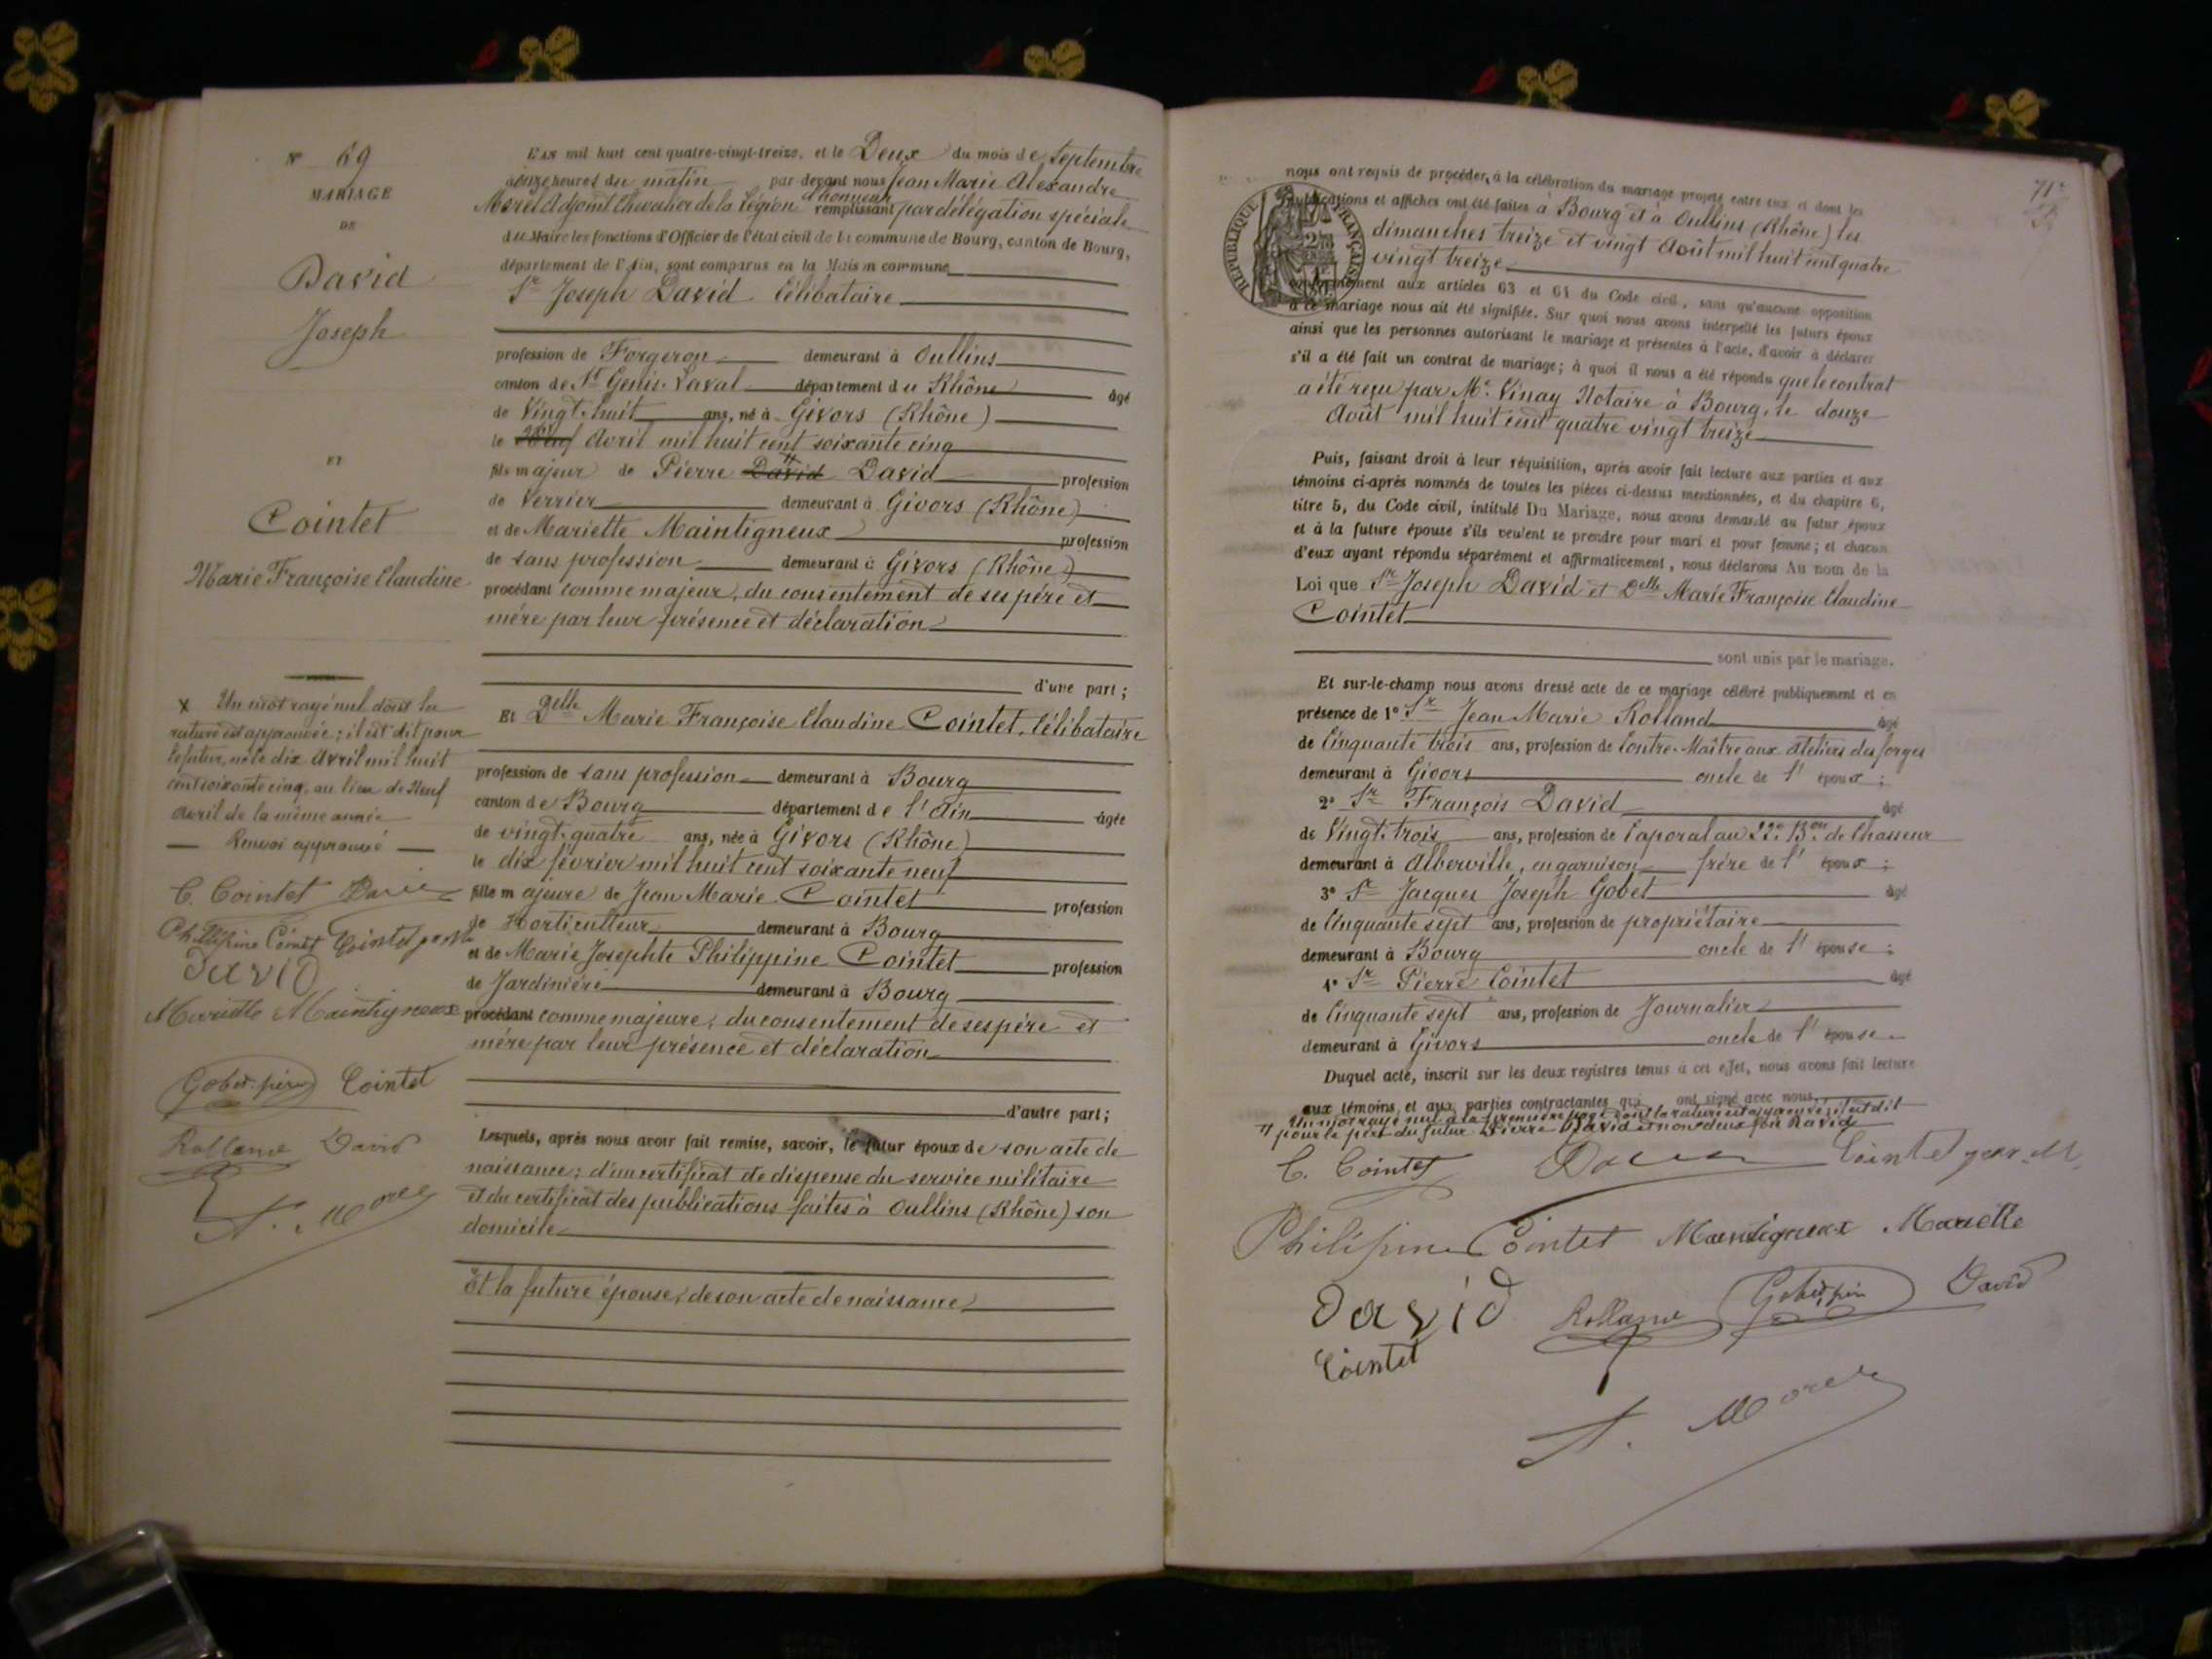 N° 69
MARIAGE
DE
David
Joseph
ET
Cointet
Marie Françoise Claudine
x Un mot rayé nul dont la
rature est approuvée ; il est dit pour
le futur, né le dix Avril mil huit
cent soixante cinq, au lieu de Neuf
avril de la même année
Renvoi approuvé
C. Cointet David
Philipine Cointet Cointet
David
Mariette Maintigneux
Gobet Cointet
Rolland David
A. Morel
L'AN mil huit cent quatre-vingt-treize, et le Deux du mois de Septembre
à onze heures du matin par devant nous Jean Marie Alexandre
Morel Adjoint Chevalier de la Légion d'honneur remplissant par délégation spéciale
du Maire les fonctions d'Officier de l'état civil de la commune de Bourg, canton de Bourg,
département de l'Ain, sont comparus en la Maison commune
Sr Joseph David Célibataire
profession de Forgeron demeurant à Oullins
canton de St Genis-Laval département du Rhône âgé
de Vingt-huit ans, né à Givors (Rhône)
le Neuf Avril mil huit cent soixante cinq
fils majeur de Pierre David David profession
de Verrier demeurant à Givors (Rhône)
et de Mariette Maintigneux profession
de sans profession demeurant à Givors (Rhône)
procédant comme majeur, du consentement de ses père et
mère par leur présence et déclaration
d'une part ;
Et Delle Marie Françoise Claudine Cointet, Célibataire
profession de sans profession demeurant à Bourg
canton de Bourg département de l'Ain âgée
de vingt-quatre ans, née à Givors (Rhône)
le dix février mil huit cent soixante neuf
fille majeure de Jean Marie Cointet profession
de Horticulteur demeurant à Bourg
et de Marie Josephte Philippine Cointet profession
de Jardinière demeurant à Bourg
procédant comme majeure, du consentement de ses père et
mère par leur présence et déclaration
d'autre part ;
Lesquels, après nous avoir fait remise, savoir, le futur époux de son acte de
naissance ; d'un certificat de dispense du service militaire
et du certificat des publications faites à Oullins (Rhône) son
domicile
Et la future épouse, de son acte de naissance
71e
nous ont requis de procéder, à la célébration du mariage projeté entre eux et dont les
publications et affiches ont été faites à Bourg et à Oullins (Rhône) les
dimanches treize et vingt Août mil huit cent quatre
vingt treize
conformément aux articles 63 et 64 du Code civil, sans qu'aucune opposition
à ce mariage nous ait été signifiée. Sur quoi nous avons interpellé les futurs époux
ainsi que les personnes autorisant le mariage et présentes à l'acte, d'avoir à déclarer
s'il a été fait un contrat de mariage ; à quoi il nous a été répondu que le contrat
a été reçu par Me Vinay Notaire à Bourg, le douze
Août mil huit cent quatre vingt treize
RÉPUBLIQUE FRANÇAISE
Puis, faisant droit à leur réquisition, après avoir fait lecture aux parties et aux
témoins ci-après nommés de toutes les pièces ci-dessus mentionnées, et du chapitre 6,
titre 5, du Code civil, intitulé Du Mariage, nous avons demandé au futur époux
et à la future épouse s'ils veulent se prendre pour mari et pour femme ; et chacun
d'eux ayant répondu séparément et affirmativement, nous déclarons Au nom de la
Loi que Sr Joseph David et Delle Marie Françoise Claudine
Cointet
sont unis par le mariage.
Et sur-le-champ nous avons dressé acte de ce mariage célébré publiquement et en
présence de 1° Sr Jean Marie Rolland âgé
de Cinquante trois ans, profession de Contre-Maître aux ateliers des forges
demeurant à Givors oncle de l'époux ;
2° Sr François David âgé
de Vingt-trois ans, profession de Caporal au 22e Bon de Chasseur
demeurant à Alberville, en garnison frère de l'époux ;
3° Sr Jacques Joseph Gobet âgé
de Cinquante sept ans, profession de propriétaire
demeurant à Bourg oncle de l'épouse ;
4° Sr Pierre Cointet âgé
de Cinquante sept ans, profession de Journalier
demeurant à Givors oncle de l'épouse
Duquel acte, inscrit sur les deux registres tenus à cet effet, nous avons fait lecture
aux témoins, et aux parties contractantes qui ont signé avec nous.
Un mot rayé nul à la première page dont la rature est approuvée ; il est dit
pour le père du futur Pierre David et non deux fois David
C. Cointet David Cointet
Philipine Cointet Maintigneux Mariette
David Rolland Gobet David
Cointet
A. Morel